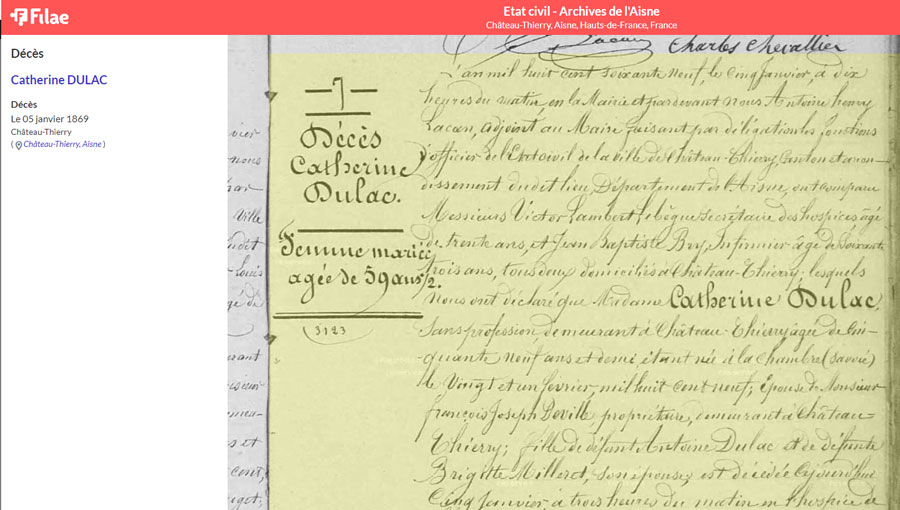 Filae
Etat civil - Archives de l'Aisne
Château-Thierry, Aisne, Hauts-de-France, France
Décès
Catherine DULAC
Décès
Le 05 janvier 1869
Château-Thierry
( Château-Thierry, Aisne )
Charles Chevallier
7
Décès
Catherine
Dulac.
Femme mariée
agée de 59 ans 1/2.
3123
L'an mil huit cent soixante neuf, le cinq janvier, à dix
heures du matin en la Mairie et pardevant nous Antoine henry
adjoint au Maire faisant par délégation les fonctions
d'officier de l'Etat civil de la Ville de Château-Thierry, Canton et arron-
dissement dudit lieu, Département de l'Aisne, ont comparu
Messieurs Victor Lambert Lebègue secrétaire des hospices âgé
de trente ans, et Jean Baptiste Bry, Infirmier âgé de soixante
trois ans, tous deux domiciliés à Château-Thierry, lesquels
Nous ont déclaré que Madame Catherine Dulac,
Sans profession, demeurant à Château-Thierry âgée de Cin-
quante neuf ans et demi, étant née à la Chambre (savoie)
le Vingt et un février, mil huit cent neuf; épouse de Monsieur
françois Joseph Deville propriétaire, demeurant à Château-
Thierry; fille de défunt Antoine Dulac et de défunte
Brigitte Milleret, son épouse, est décédée Cejourd'hui
Cinq Janvier à trois heures du matin en l'hospice de